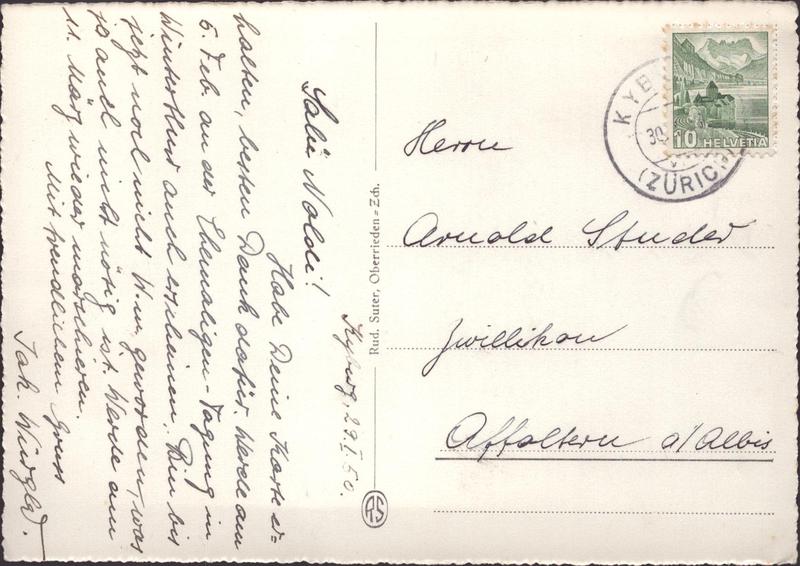 Kyburg, 29.I.50.
Salü Noldi!
Habe Deine Karte er-
halten, besten Dank dafür. Werde am
5. Feb. an der Ehemaligen-Tagung in
Winterthur auch erscheinen. Bin bis
jetzt noch nicht W.m. geworden, was
ja auch nicht nötig ist. Werde am
11. März wieder marschieren.
Mit freundlichem Gruss
Jak.
Rud. Suter, Oberrieden-Zch.
RS
Herrn
Arnold Studer
Zwillikon
Affoltern a/Albis
KYB
30
(ZÜRICH)
10 HELVETIA